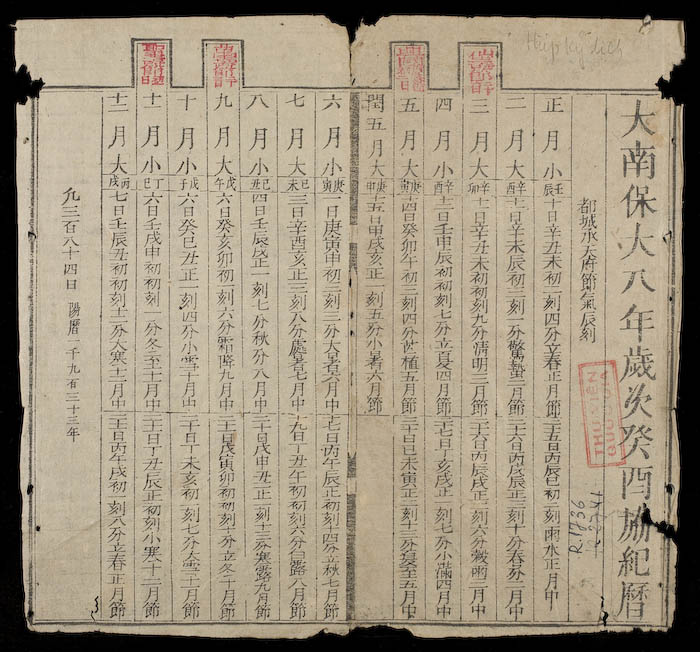 Hiệp kỷ lịch
大南保大八年歲次癸酉協紀曆
都城承天府節氣辰刻
正月小壬辰十日辛丑未初二刻四分立春正月節二十五日丙辰巳初二刻雨水正月中
二月大辛酉十一日辛未辰初二刻二分驚蟄二月節二十六日丙戌辰正二刻十分春分二月中
三月大辛卯十一日辛丑未初初刻九分清明三月節二十六日丙辰戌正一刻六分穀雨三月中
四月小辛酉十二日壬申辰初初刻七分立夏四月節二十七日丁亥戌正一刻七分小滿四月中
五月大庚寅十四日癸卯午初三刻四分芒種五月節三十日己未寅正一刻十三分夏至五月中
閏五月大庚申十五日甲戌亥正一刻五分小暑六月節
六月小庚寅一日庚寅申初三刻三分大暑六月中十七日丙午辰正初刻四分立秋七月節
七月大己未三日辛酉亥正三刻八分處暑七月中十九日丁丑午初初刻六分白露八月節
八月小己丑四日壬辰戌正一刻七分秋分八月中二十日戊申丑正一刻十三分寒露九月節
九月大戊午六日癸亥卯初二刻六分霜降九月中二十一日戊寅卯初初刻十分立冬十月節
十月小戊子六日癸巳丑正一刻四分小雪十月中二十日丁未亥初一刻七分大雪十一月節
十一月小丁巳六日壬戌申初初刻一分冬至十一月中二十一日丁丑辰正初刻小寒十二月節
十二月大丙戌七日壬辰丑初初刻十一分大寒十二月中二十一日丙午戌初一刻八分立春正月節
凡三百八十四日 陽曆一千九百三十三年
THƯ VIỆN
QUỐC GIA
R.1736